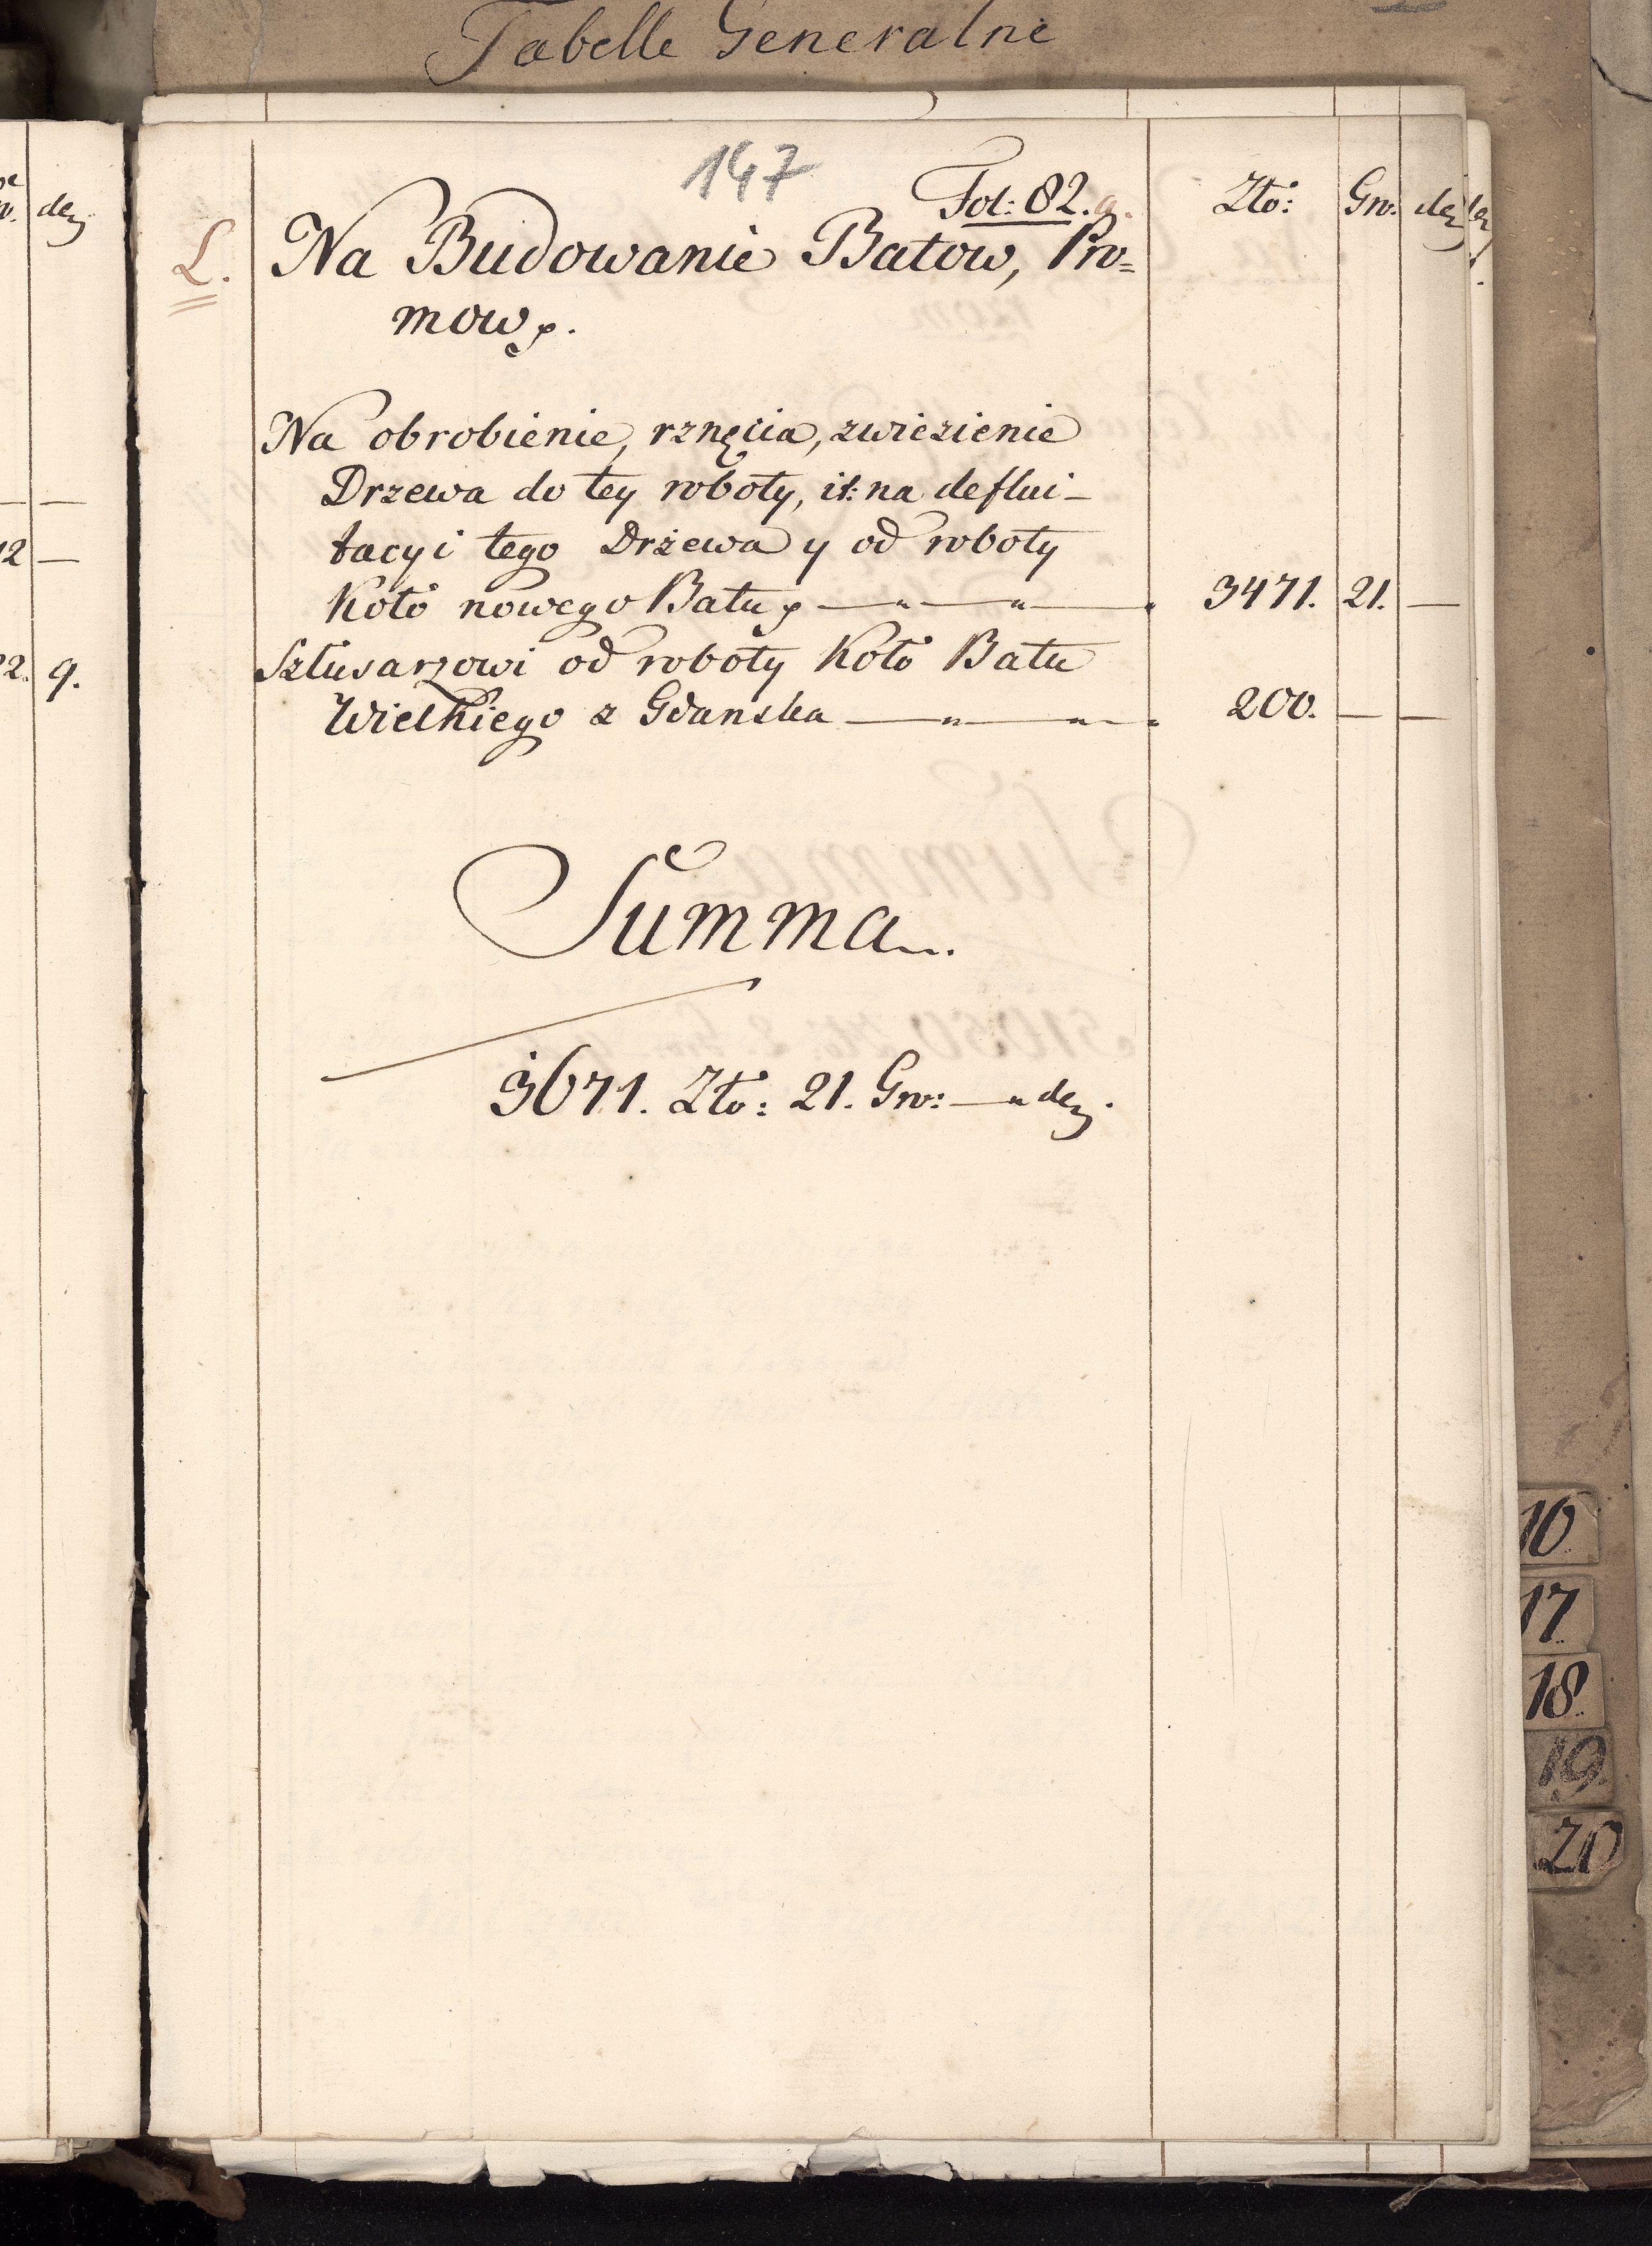 Tabelle Generalne
147
Fol: 82. a.
Złо: Gro: den
L. Na Budowanie Batow, Pro=
mow p.
Na obrobienie, rznęcia, zwiezienie
Drzewa do tey roboty, it: na deflui-
tacyi tego Drzewa y od roboty
Koło nowego Batu p — " — " — 3471. 21. —
Szlusarzowi od roboty Koło Batu
Wielkiego z Gdanska — " — " — 200. — —
Summa
3671. Zło: 21. Gro: — " den.
den
12 —
22. 9.
16
17
18
19.
20